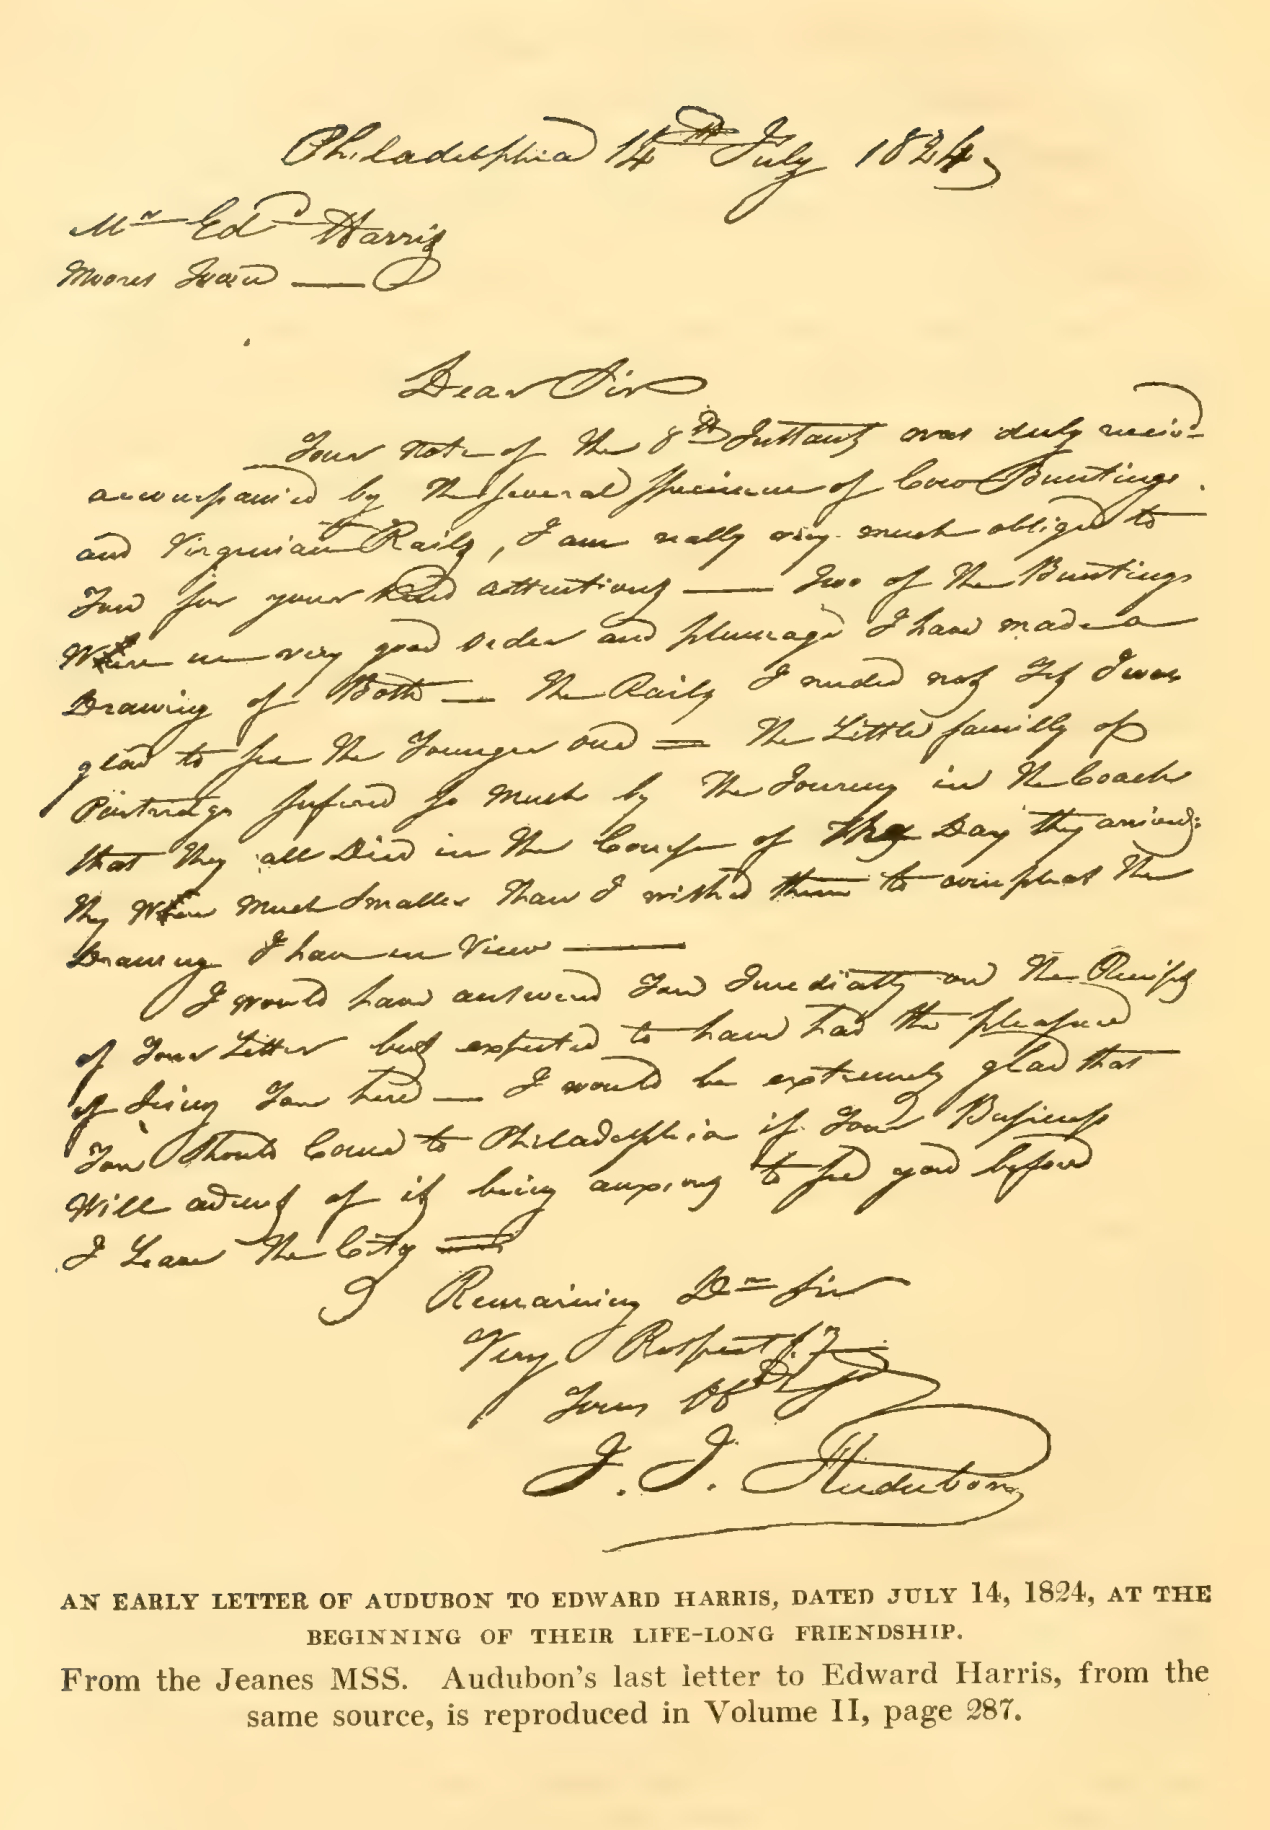 Philadelphia 14th July 1824,
Mr Edd Harris
Moores Town —
Dear Sir
Your note of the 8th Instant was duly receivd
accompanied by the several specimens of Cow Buntings.
and Virginian Rails, I am really very much obliged to
You for your kind attentions — Two of the Buntings
Were in very good order and plumage I have made a
Drawing of Both — The Rails I needed not Yet I was
glad to see the Younger one = The Little familly of
Partridge sufered so much by the Journey in the Coach
that they all Died in the Course of the Day they arrived:
they Were much smaller than I wished them to compleat the
Drawing I have in View —
I would have answered You Imediatly on the Receipt
of Your Letter but expected to have had the pleasure
of Seing You here — I would be extremely glad that
You should Come to Philadelphia if Your Business
Will admit of it being anxious to see you before
I Leave the City =
I Remaining Dr Sir
Very Respectf.y
Yours
J. J. Audubon
AN EARLY LETTER OF AUDUBON TO EDWARD HARRIS, DATED JULY 14, 1824, AT THE
BEGINNING OF THEIR LIFE-LONG FRIENDSHIP.
From the Jeanes MSS. Audubon's last letter to Edward Harris, from the
same source, is reproduced in Volume II, page 287.